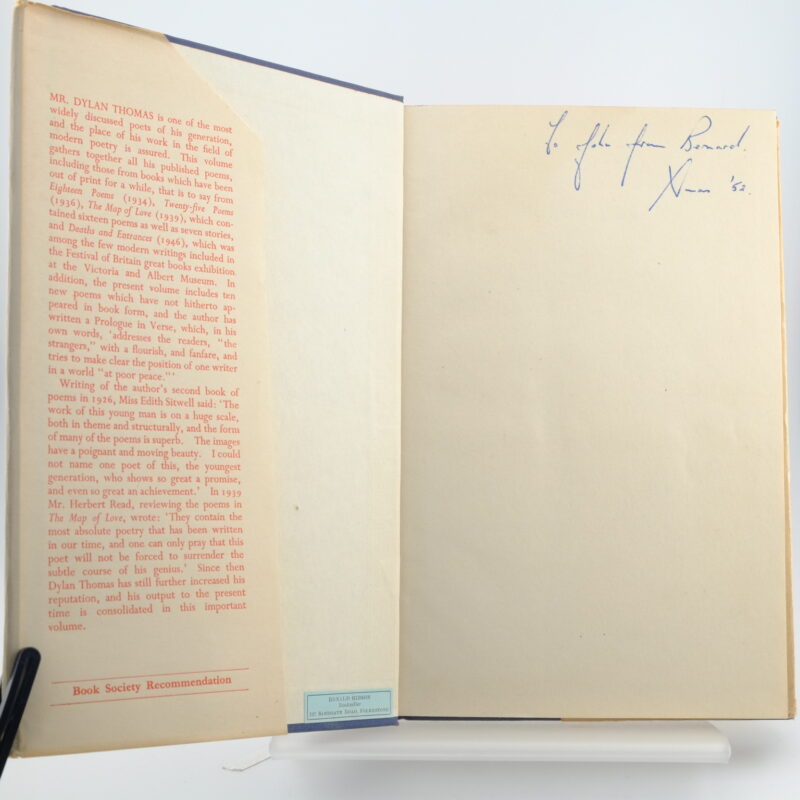 MR. DYLAN THOMAS is one of the most
widely discussed poets of his generation,
and the place of his work in the field of
modern poetry is assured. This volume
gathers together all his published poems,
including those from books which have been
out of print for a while, that is to say from
Eighteen Poems (1934), Twenty-five Poems
(1936), The Map of Love (1939), which con-
tained sixteen poems as well as seven stories,
and Deaths and Entrances (1946), which was
among the few modern writings included in
the Festival of Britain great books exhibition
at the Victoria and Albert Museum. In
addition, the present volume includes ten
new poems which have not hitherto ap-
peared in book form, and the author has
written a Prologue in Verse, which, in his
own words, 'addresses the readers, "the
strangers," with a flourish, and fanfare, and
tries to make clear the position of one writer
in a world "at poor peace."'
Writing of the author's second book of
poems in 1926, Miss Edith Sitwell said: 'The
work of this young man is on a huge scale,
both in theme and structurally, and the form
of many of the poems is superb. The images
have a poignant and moving beauty. I could
not name one poet of this, the youngest
generation, who shows so great a promise,
and even so great an achievement.' In 1939
Mr. Herbert Read, reviewing the poems in
The Map of Love, wrote: 'They contain the
most absolute poetry that has been written
in our time, and one can only pray that this
poet will not be forced to surrender the
subtle course of his genius.' Since then
Dylan Thomas has still further increased his
reputation, and his output to the present
time is consolidated in this important
volume.
Book Society Recommendation
Bookseller
Road, Folkestone
To John from Bernard.
Xmas '52.